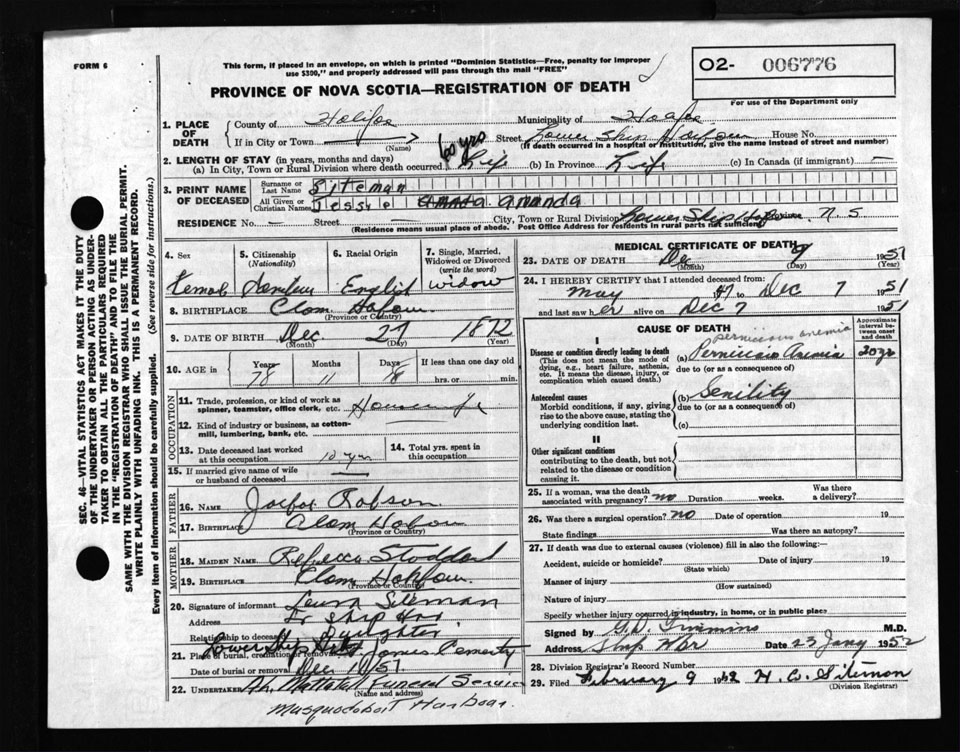 FORM 6
This form, if placed in an envelope, on which is printed "Dominion Statistics—Free, penalty for improper
use $300," and properly addressed will pass through the mail "FREE"
O2- 006776
For use of the Department only
PROVINCE OF NOVA SCOTIA—REGISTRATION OF DEATH
1. PLACE OF DEATH
County of Halifax Municipality of Halifax
If in City or Town (Name) Street Lower Ship Harbour House No.
(If death occurred in a hospital or institution, give the name instead of street and number)
2. LENGTH OF STAY (in years, months and days)
(a) In City, Town or Rural Division where death occurred 60 yrs Life (b) In Province Life (c) In Canada (if immigrant) —
3. PRINT NAME OF DECEASED
Surname or Last Name Siteman
All Given or Christian Names Jessie Amanda
RESIDENCE No. — Street City, Town or Rural Division Lower Ship N. S.
(Residence means usual place of abode. Post Office Address for residents in rural parts not sufficient)
4. Sex
5. Citizenship (Nationality)
6. Racial Origin
7. Single, Married, Widowed or Divorced (write the word)
English widow
8. BIRTHPLACE Clam
(Province or Country)
9. DATE OF BIRTH Dec. 27 1872
(Month) (Day) (Year)
10. AGE in Years Months Days If less than one day old
78 11 hrs. or min.
OCCUPATION
11. Trade, profession, or kind of work as spinner, teamster, office clerk, etc. Housewife
12. Kind of industry or business, as cotton-mill, lumbering, bank, etc.
13. Date deceased last worked at this occupation 10 yrs
14. Total yrs. spent in this occupation
15. If married give name of wife or husband of deceased
FATHER
16. NAME Robson
17. BIRTHPLACE Clam
(Province or Country)
MOTHER
18. MAIDEN NAME Rebecca Stoddard
19. BIRTHPLACE Clam Harbour
(Province or Country)
20. Signature of informant Siteman
Address Ship Hrb
Relationship to deceased Daughter
21. Place of burial, cremation or removal Lower Ship James Cemetry
Date of burial or removal Dec 10 / 51
22. UNDERTAKER Funeral Service
(Name and address)
Musquodoboit Harbour.
MEDICAL CERTIFICATE OF DEATH
23. DATE OF DEATH Dec 1951
(Month) (Day) (Year)
24. I HEREBY CERTIFY that I attended deceased from:
May 47 to Dec 7 1951
and last saw her alive on Dec 7 1951
CAUSE OF DEATH
Approximate interval between onset and death
I
Disease or condition directly leading to death
(This does not mean the mode of dying, e.g., heart failure, asthenia, etc. It means the disease, injury, or complication which caused death.)
pernicious anemia
(a) Pernicious Anemia 20 yr
due to (or as a consequence of)
Antecedent causes
Morbid conditions, if any, giving rise to the above cause, stating the underlying condition last.
(b) Senility
due to (or as a consequence of)
(c)
II
Other significant conditions
contributing to the death, but not related to the disease or condition causing it.
25. If a woman, was the death associated with pregnancy? no Duration weeks. Was there a delivery?
26. Was there a surgical operation? no Date of operation 19
State findings Was there an autopsy?
27. If death was due to external causes (violence) fill in also the following:
Accident, suicide or homicide? Date of injury 19
(State which)
Manner of injury
(How sustained)
Nature of injury
Specify whether injury occurred in industry, in home, or in public place
Signed by M.D.
Address Ship Hbr Date 23 Jany 1952
28. Division Registrar's Record Number
29. Filed February 9 1952 Siteman
(Division Registrar)
SEC. 46—VITAL STATISTICS ACT MAKES IT THE DUTY
OF THE UNDERTAKER OR PERSON ACTING AS UNDER-
TAKER TO OBTAIN ALL THE PARTICULARS REQUIRED
IN THE "REGISTRATION OF DEATH" AND TO FILE THE
SAME WITH THE DIVISION REGISTRAR WHO SHALL ISSUE THE BURIAL PERMIT.
WRITE PLAINLY WITH UNFADING INK. THIS IS A PERMANENT RECORD.
Every item of information should be carefully supplied. (See reverse side for instructions.)